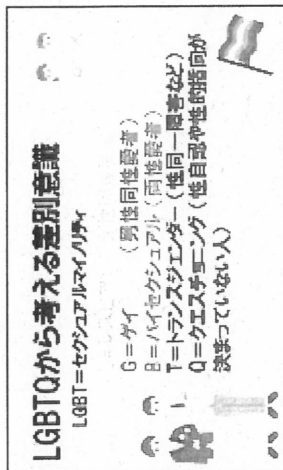 LGBTQから考える差別意識
LGBT=セクシュアルマイノリティ
G=ゲイ （男性同性愛者）
B=バイセクシュアル（両性愛者）
T=トランスジェンダー（性同一障害など）
Q=クエスチョニング（性自認や性的指向が
決まっていない人）